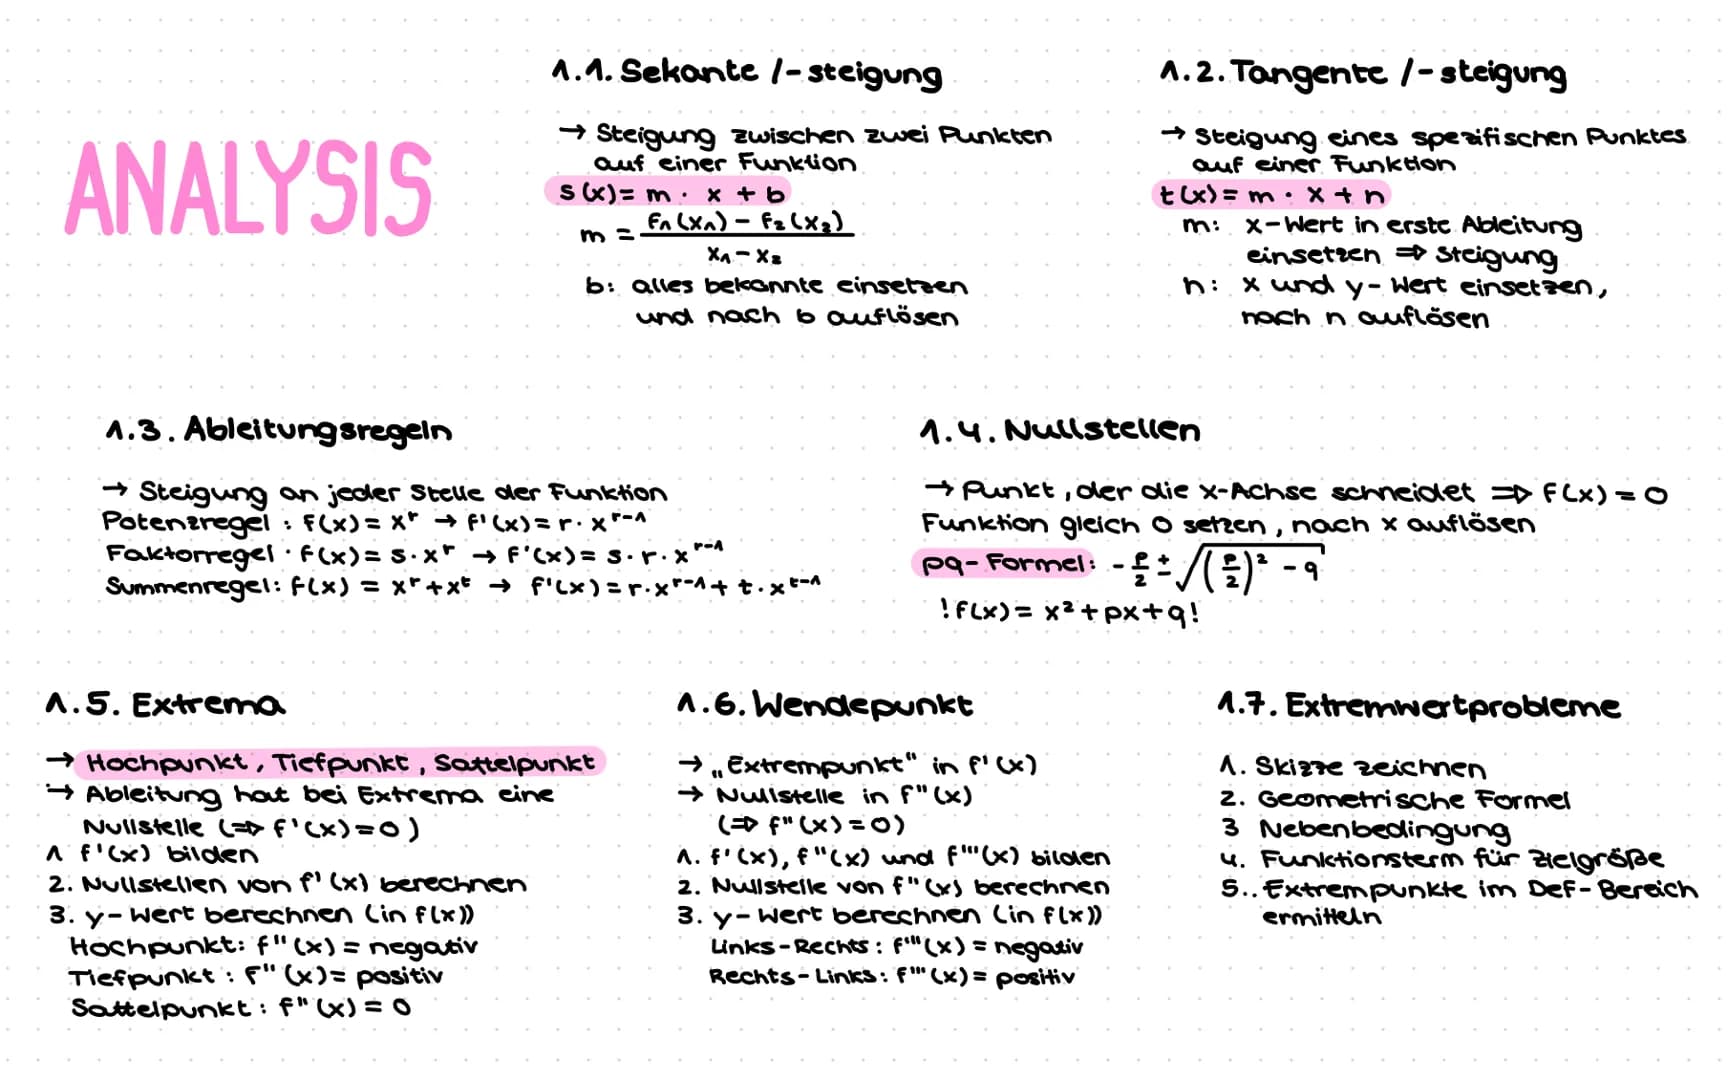 ANALYSIS
1.1. Sekante /-steigung
→ Steigung zwischen zwei Punkten
auf einer Funktion
s(x) = m · x + b
m = f₁(x₁) - f₂(x₂) / x₁ - x₂
b: alles bekannte einsetzen
und nach b auflösen
1.2. Tangente /-steigung
→ Steigung eines spezifischen Punktes
auf einer Funktion
t(x) = m · x + n
m: x-Wert in erste Ableitung
einsetzen ⇒ Steigung
n: x und y-Wert einsetzen,
nach n auflösen
1.3. Ableitungsregeln
→ Steigung an jeder Stelle der Funktion
Potenzregel : f(x) = xʳ → f'(x) = r · xʳ⁻¹
Faktorregel · f(x) = s · xʳ → f'(x) = s · r · xʳ⁻¹
Summenregel: f(x) = xʳ + xᵗ → f'(x) = r · xʳ⁻¹ + t · xᵗ⁻¹
1.4. Nullstellen
→ Punkt, der die x-Achse schneidet ⇒ f(x) = 0
Funktion gleich 0 setzen, nach x auflösen
pq-Formel: - p/2 ± √((p/2)² - q)
! f(x) = x² + px + q !
1.5. Extrema
→ Hochpunkt, Tiefpunkt, Sattelpunkt
→ Ableitung hat bei Extrema eine
Nullstelle (⇒ f'(x) = 0)
1 f'(x) bilden
2. Nullstellen von f'(x) berechnen
3. y-Wert berechnen (in f(x))
Hochpunkt: f''(x) = negativ
Tiefpunkt : f''(x) = positiv
Sattelpunkt : f''(x) = 0
1.6. Wendepunkt
→ „Extrempunkt" in f'(x)
→ Nullstelle in f''(x)
(⇒ f''(x) = 0)
1. f'(x), f''(x) und f'''(x) bilden
2. Nullstelle von f''(x) berechnen
3. y-Wert berechnen (in f(x))
Links-Rechts : f'''(x) = negativ
Rechts-Links : f'''(x) = positiv
1.7. Extremwertprobleme
1. Skizze zeichnen
2. Geometrische Formel
3 Nebenbedingung
4. Funktionsterm für Zielgröße
5.. Extrempunkte im Def-Bereich
ermitteln